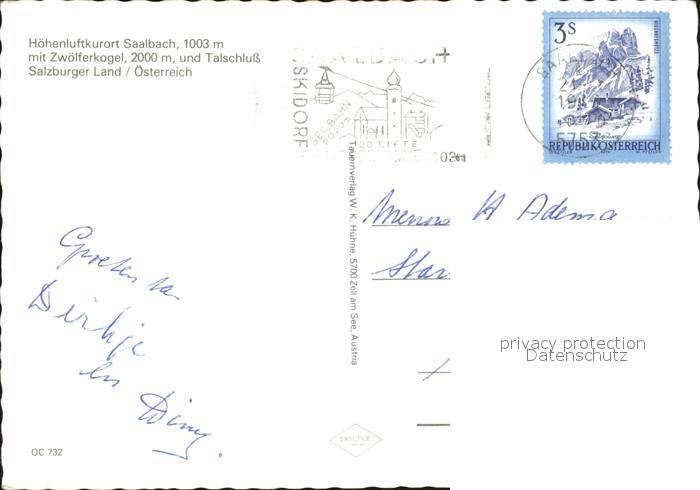 Höhenluftkurort Saalbach, 1003 m
mit Zwölferkogel, 2000 m, und Talschluß
Salzburger Land / Österreich
SAALBACH
SKIDORF
SEILBAHN
2020m
20 LIFTE
1003m
3S
5753
REPUBLIK ÖSTERREICH
Tauernverlag W. K. Hühne, 5700 Zell am See, Austria
K Adema
Groeten van
Dirkje
en
privacy protection
Datenschutz
OC 732